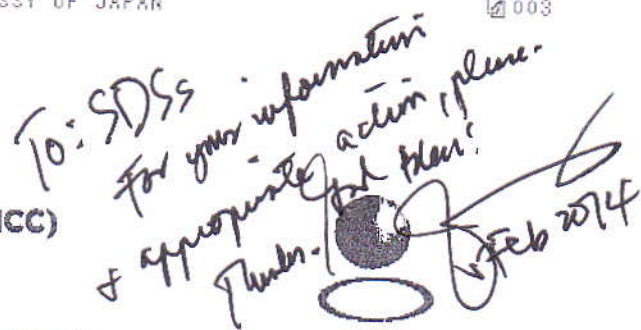 SSY OF JAPAN 003
To: SDSs
For your information
& appropriate action, please.
Thanks. God bless!
ICC)
Feb 2014